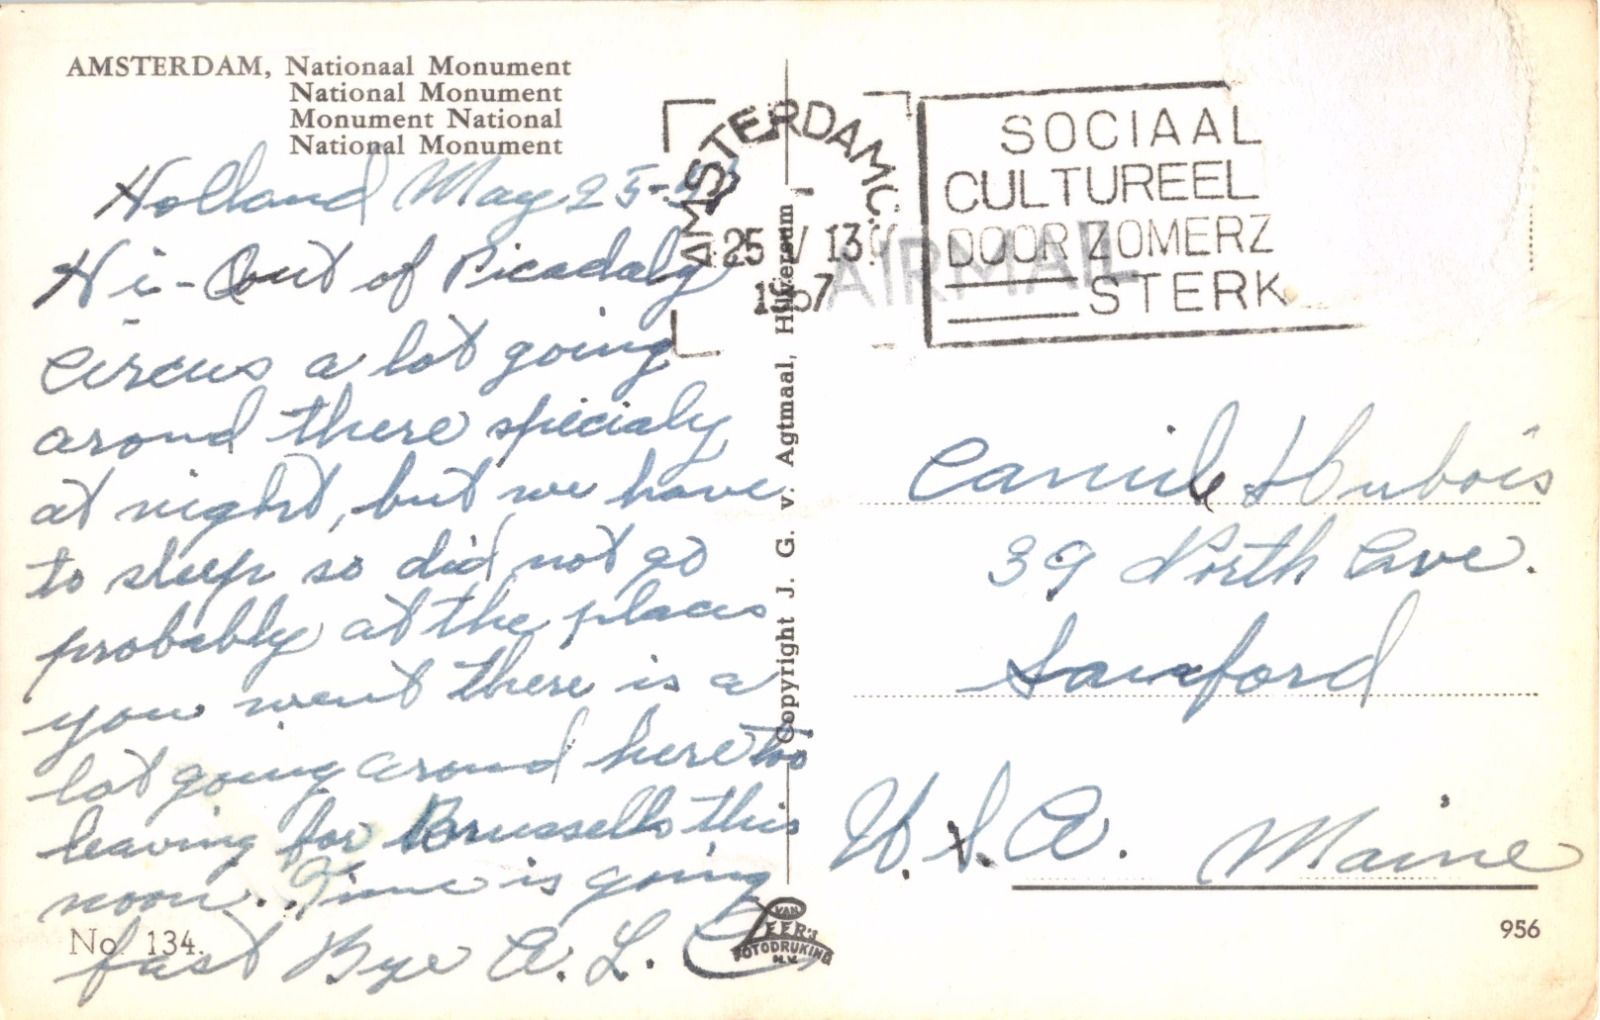 AMSTERDAM, Nationaal Monument
National Monument
Monument National
National Monument
Holland May 25-
Hi - Out of Picadaly
circus a lot going
around there specialy
at night, but we have
to sleep so did not go
probably at the places
you went there is a
lot going around here too
leaving for Brussells this
noon. Time is going
fast Bye A. L.
No. 134.
Copyright J. G. v. Agtmaal, Hilversum
VAN
LEER'S
FOTODRUKIND
N.V.
AMSTERDAM C.
25 V 13
1957
AIRMAIL
SOCIAAL
CULTUREEL
DOOR ZOMERZ
STERK
Camile H Dubois
39 North Ave.
Sanford
U.S.A. Maine
956